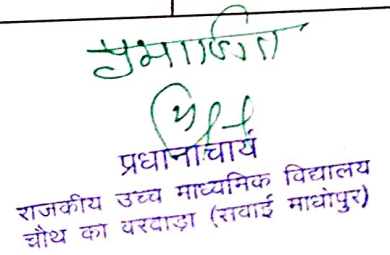 प्रमाणित
प्रधानाचार्य
राजकीय उच्च माध्यमिक विद्यालय
चौथ का बरवाड़ा (सवाई माधोपुर)